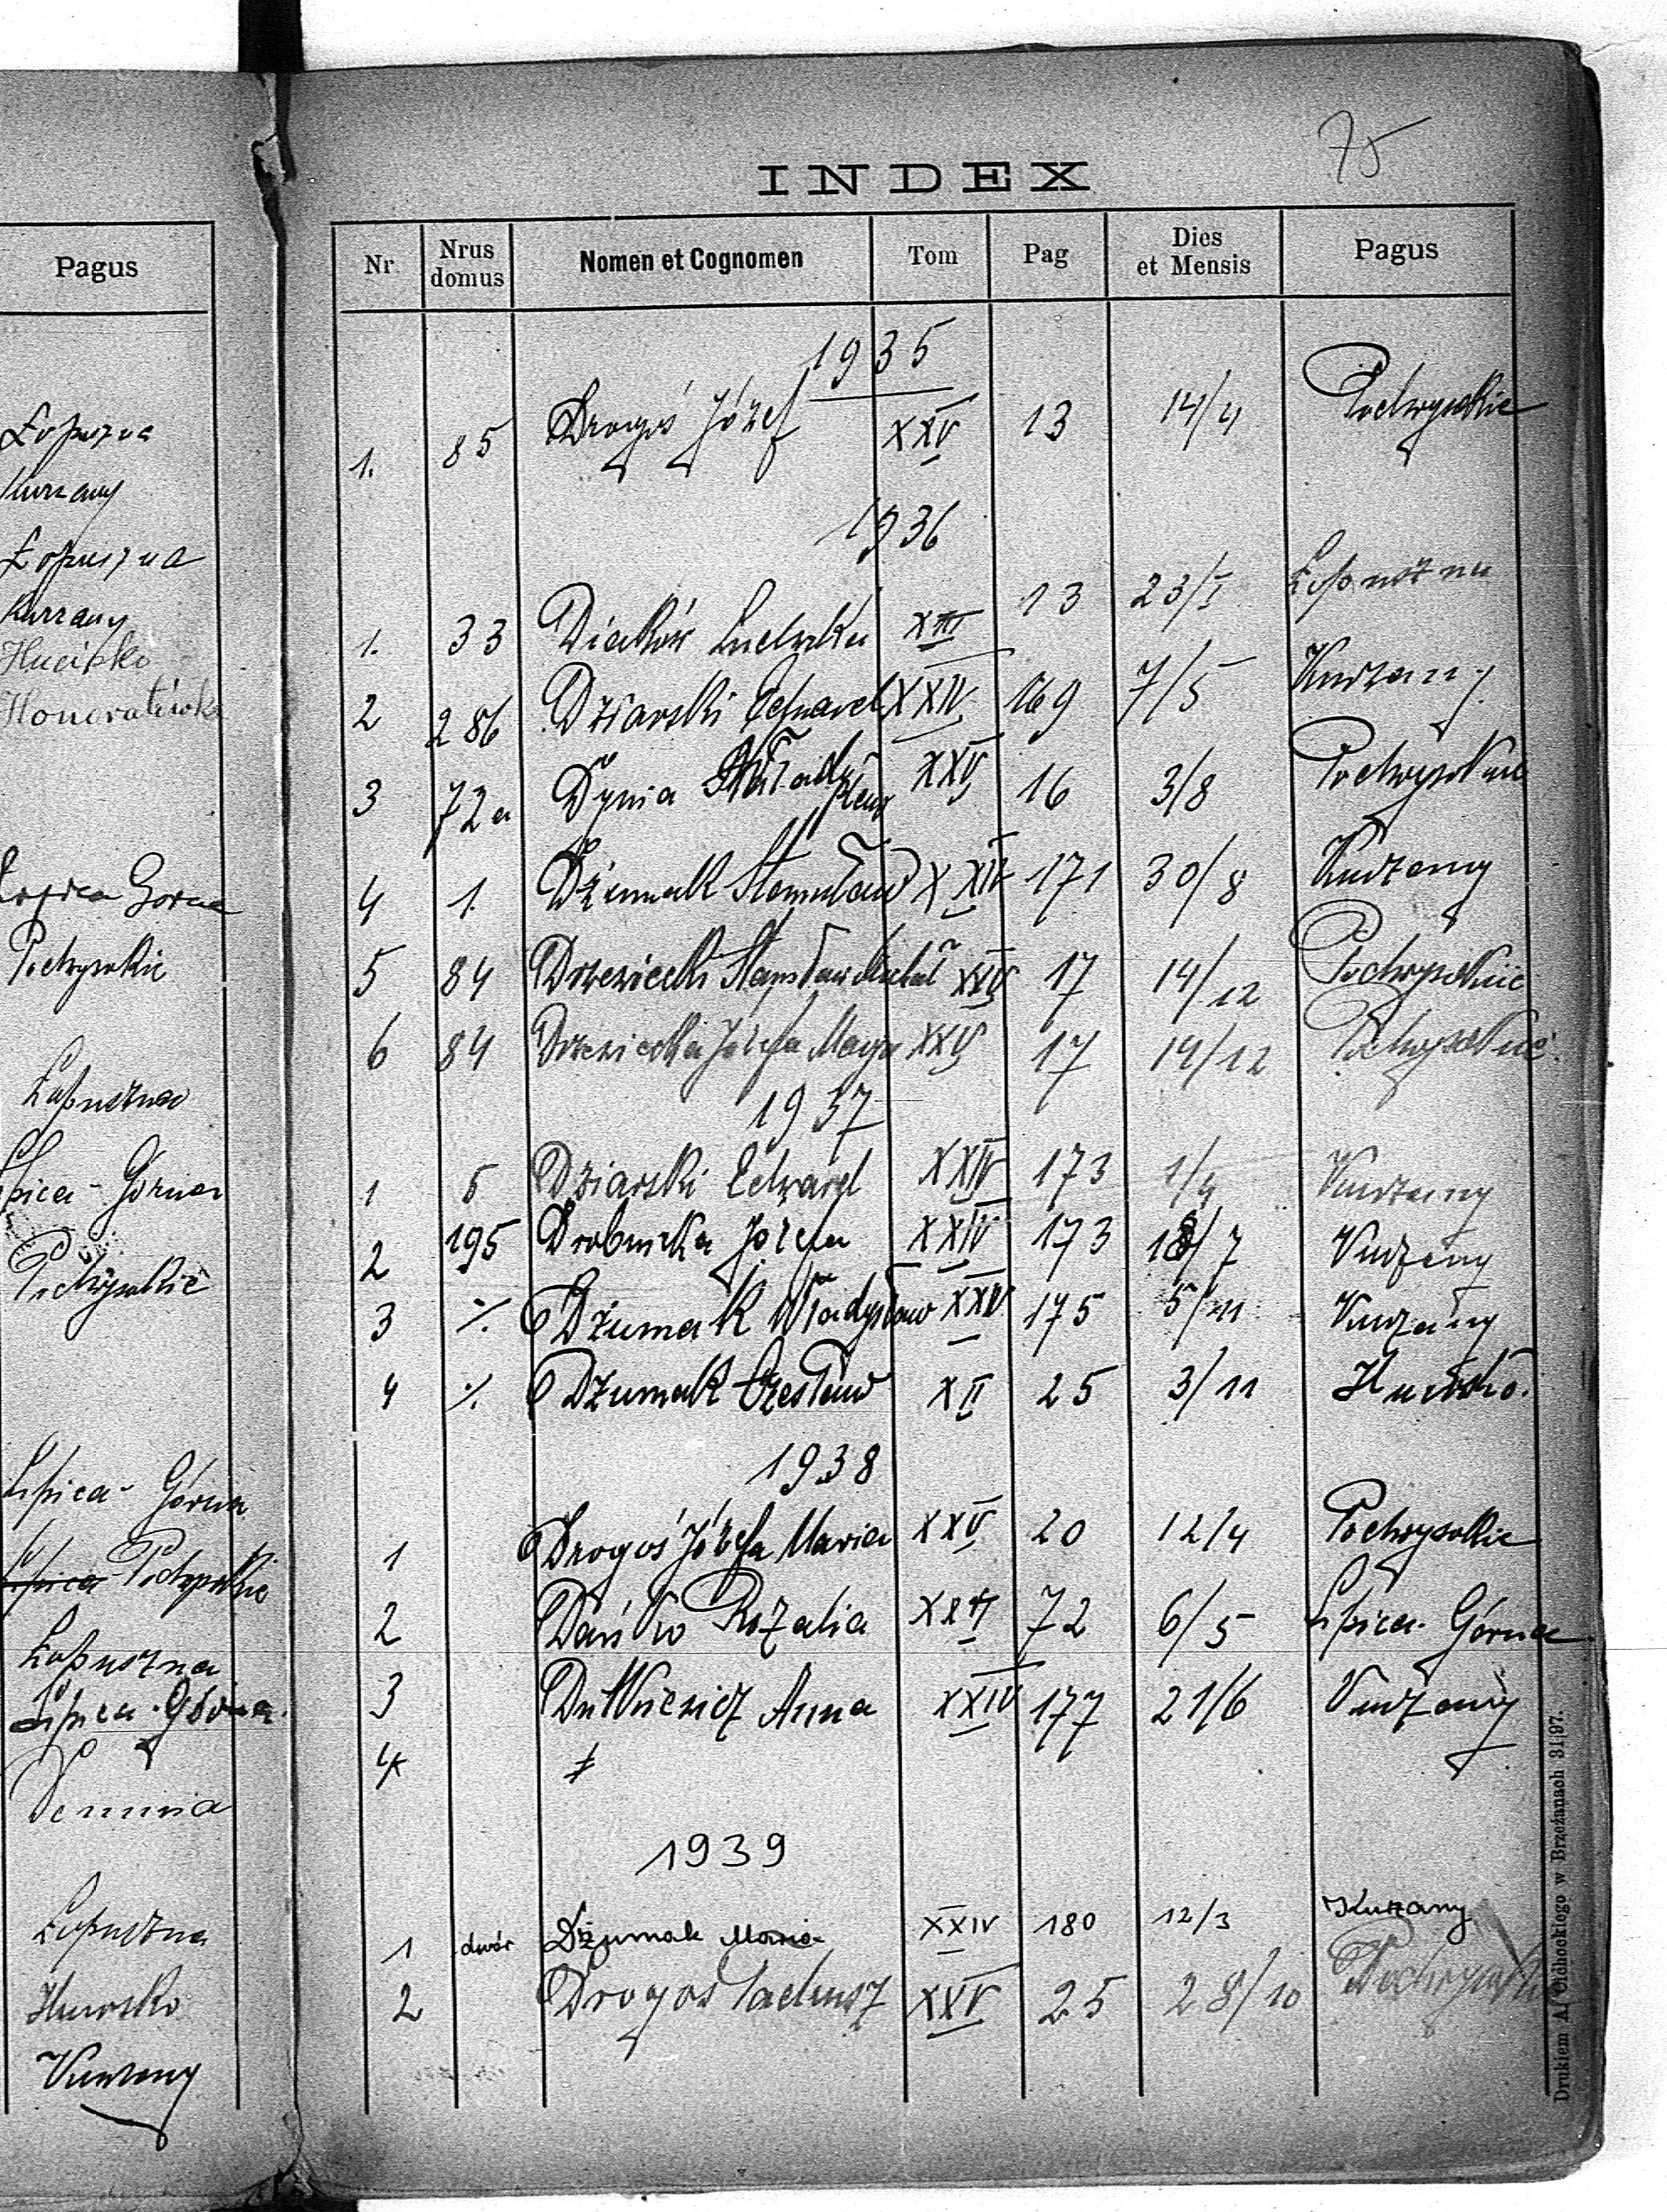 Pagus
Łopuszna
Kurzany
Łopuszna
Kurzany
Hucisko
Honoratówka
Lipica Gorna
Podwysokie
Łopuszna
Lipica - Górna
Podwysokie
Lipica - Górna
Lipica Podwysokie
Łopuszna
Lipica - Górna.
Demnia
Łopuszna
Hucisko
Kurzany
75
INDEX
Nr. Nrus domus Nomen et Cognomen Tom Pag Dies et Mensis Pagus
1935
1. 85 Drogoś Józef XXV 13 14/4 Podwysokie
1936
1. 33 Diaków Ludwika XIII 13 23/I Łopuszna
2 286 Dziarski Edward XXIV 169 7/5 Kurzany
3 72a Dynia XXV 16 3/8 Podwysokie
4 1. Dżumak Stanisław XXIV 171 30/8 Kurzany
5 84 Drzewiecki Stanisław Michał XXV 17 14/12 Podwysokie
6 84 Drzewiecka Józefa Marya XXV 17 14/12 Podwysokie
1937
1 5 Dziarski Edward XXIV 173 1/4 Kurzany
2 195 Drobnicka Józefa XXIV 173 18/7 Kurzany
3 ./. Dżumak Władysław XXIV 175 5/11 Kurzany
4 ./. Dżumak Czesław XII 25 3/11 Hucisko.
1938
1 Drogoś Józefa Maria XXV 20 12/4 Podwysokie
2 Dańko Rozalia XXVI 72 6/5 Lipica - Górna.
3 Dutkiewicz Anna XXIV 177 21/6 Kurzany
4
1939
1 dwór Dżumak Maria XXIV 180 12/3 Kurzany
2 Drogoś Tadeusz XXV 25 28/10 Podwysokie
Drukiem A. Cichockiego w Brzeżanach 31|97.